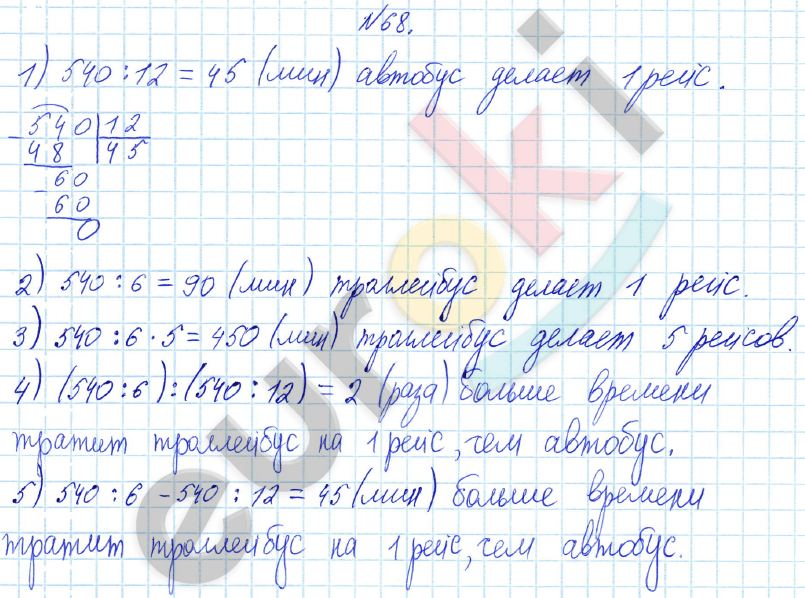 №68.
1) 540 : 12 = 45 (мин) автобус делает 1 рейс.
540 | 12
48 | 45
60
60
0
2) 540 : 6 = 90 (мин) троллейбус делает 1 рейс.
3) 540 : 6 · 5 = 450 (мин) троллейбус делает 5 рейсов.
4) (540 : 6) : (540 : 12) = 2 (раза) больше времени
тратит троллейбус на 1 рейс, чем автобус.
5) 540 : 6 - 540 : 12 = 45 (мин) больше времени
тратит троллейбус на 1 рейс, чем автобус.
euroki